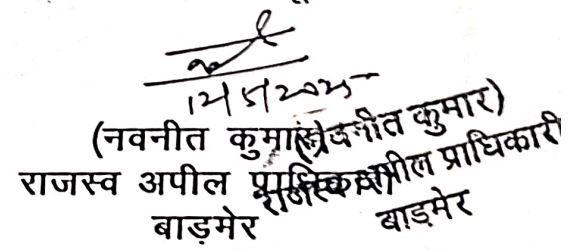 12/5/2025
(नवनीत कुमार)
राजस्व अपील प्राधिकारी
बाड़मेर
(नवनीत कुमार)
राजस्व अपील प्राधिकारी
बाड़मेर